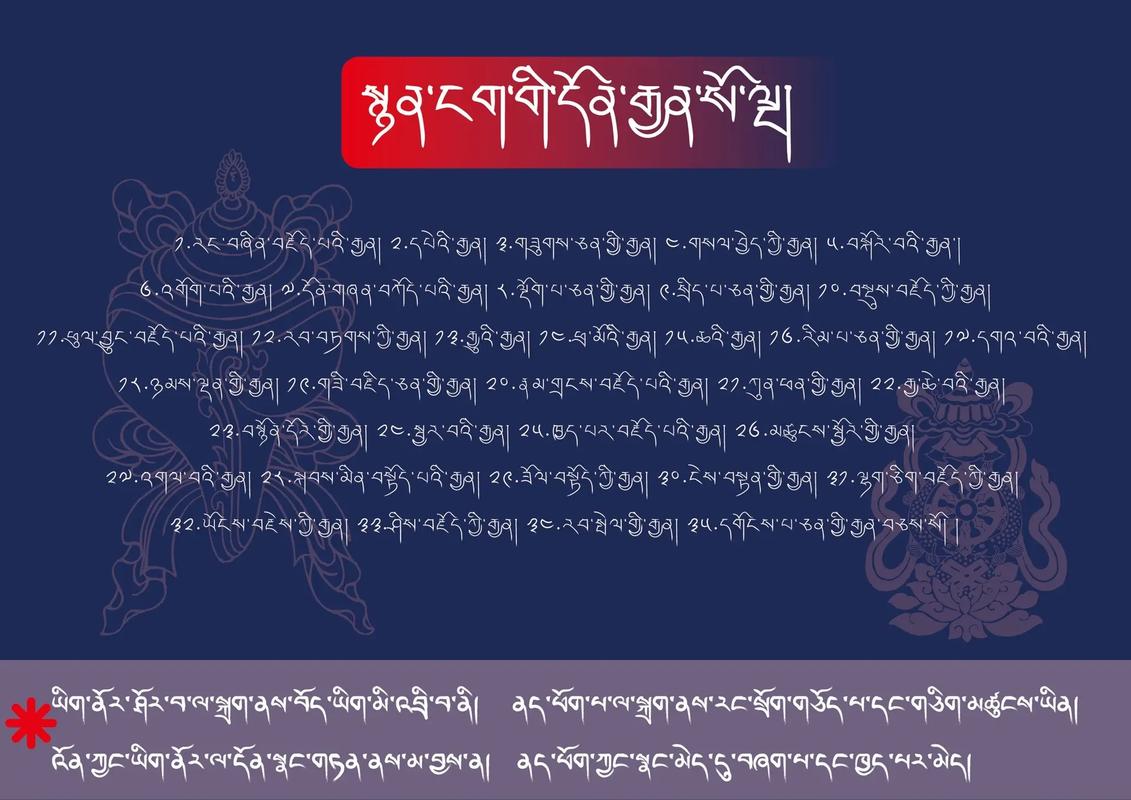 སྙན་ངག་གི་དོན་རྒྱན་སོ་ལྔ།
༡.རང་བཞིན་བརྗོད་པའི་རྒྱན། ༢.དཔེའི་རྒྱན། ༣.གཟུགས་ཅན་གྱི་རྒྱན། ༤.གསལ་བྱེད་ཀྱི་རྒྱན། ༥.བསྐོར་བའི་རྒྱན་།
༦.འགོག་པའི་རྒྱན། ༧.དོན་གཞན་བཀོད་པའི་རྒྱན། ༨.ལྡོག་པ་ཅན་གྱི་རྒྱན། ༩.སྲིད་པ་ཅན་གྱི་རྒྱན། ༡༠.བསྡུས་བརྗོད་ཀྱི་རྒྱན།
༡༡.ཕུལ་བྱུང་བརྗོད་པའི་རྒྱན། ༡༢.རབ་བཏགས་ཀྱི་རྒྱན། ༡༣.རྒྱུའི་རྒྱན། ༡༤.ཕྲ་མོའི་རྒྱན། ༡༥.ཆའི་རྒྱན། ༡༦.རིམ་པ་ཅན་གྱི་རྒྱན། ༡༧.དགའ་བའི་རྒྱན།
༡༨.ཉམས་ལྡན་གྱི་རྒྱན། ༡༩.གཟི་བརྗིད་ཅན་གྱི་རྒྱན། ༢༠.རྣམ་གྲངས་བརྗོད་པའི་རྒྱན། ༢༡.ཀུན་ཕན་གྱི་རྒྱན། ༢༢.རྒྱ་ཆེ་བའི་རྒྱན།
༢༣.བསྙོན་དོར་གྱི་རྒྱན། ༢༤.སྦྱར་བའི་རྒྱན། ༢༥.ཁྱད་པར་བརྗོད་པའི་རྒྱན། ༢༦.མཚུངས་སྦྱོར་གྱི་རྒྱན།
༢༧.འགལ་བའི་རྒྱན། ༢༨.སྐབས་མིན་བསྟོད་པའི་རྒྱན། ༢༩.ཟོལ་བསྟོད་ཀྱི་རྒྱན། ༣༠.ངེས་བསྟན་གྱི་རྒྱན། ༣༡.ལྷན་ཅིག་བརྗོད་ཀྱི་རྒྱན།
༣༢.ཡོངས་བརྗེས་ཀྱི་རྒྱན། ༣༣.ཤིས་བརྗོད་ཀྱི་རྒྱན། ༣༤.རབ་སྤེལ་གྱི་རྒྱན། ༣༥.དགོངས་པ་ཅན་གྱི་རྒྱན་བཅས་སོ། །
ཡིག་ནོར་ཤོར་བ་ལ་སྐྲག་ནས་བོད་ཡིག་མི་འབྲི་བ་ནི། ནད་ཕོག་པ་ལ་སྐྲག་ནས་རང་སྲོག་གཅོད་པ་དང་གཅིག་མཚུངས་ཡིན།
འོན་ཀྱང་ཡིག་ནོར་ལ་དོན་སྣང་གཏན་ནས་མ་བྱས་ན། ནད་ཕོག་ཀྱང་སྣང་མེད་དུ་བཞག་པ་དང་ཁྱད་པར་མེད།